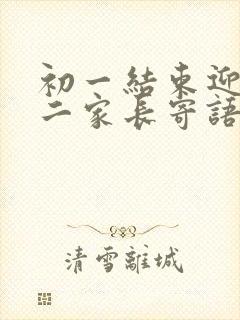 初一結束迎
二家長寄語
清雪離城